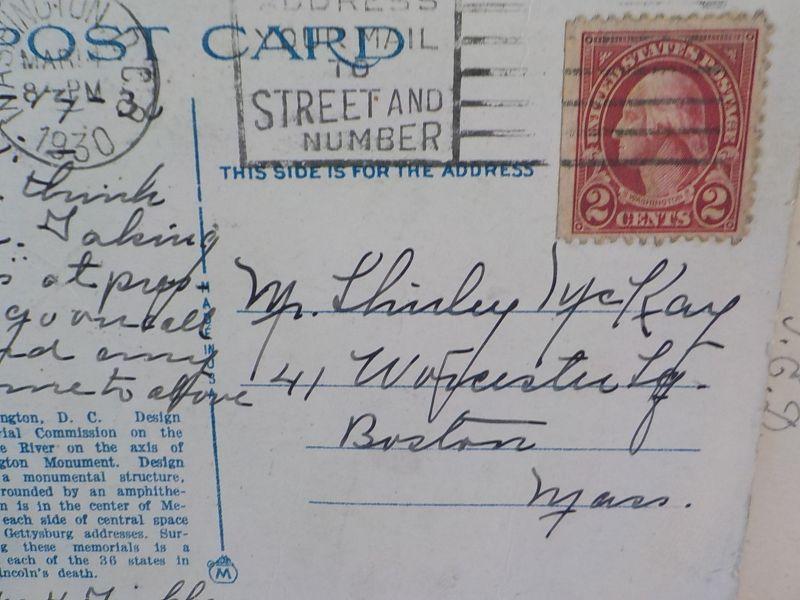 POST CARD
WASHINGTON D.C.
MAR
8 PM
1930
ADDRESS
YOUR MAIL
TO
STREET AND
NUMBER
UNITED STATES POSTAGE
WASHINGTON
2 CENTS 2
THIS SIDE IS FOR THE ADDRESS
think
Taking
at pres-
go on all
and any
me to above
MADE IN USA
Mr. Shirley McKay
41 Worcester Sq.
Boston
Mass.
ngton, D. C. Design
rial Commission on the
e River on the axis of
gton Monument. Design
a monumental structure,
rounded by an amphithe-
n is in the center of Me-
each side of central space
Gettysburg addresses. Sur-
g these memorials is a
each of the 36 states in
incoln's death.
M